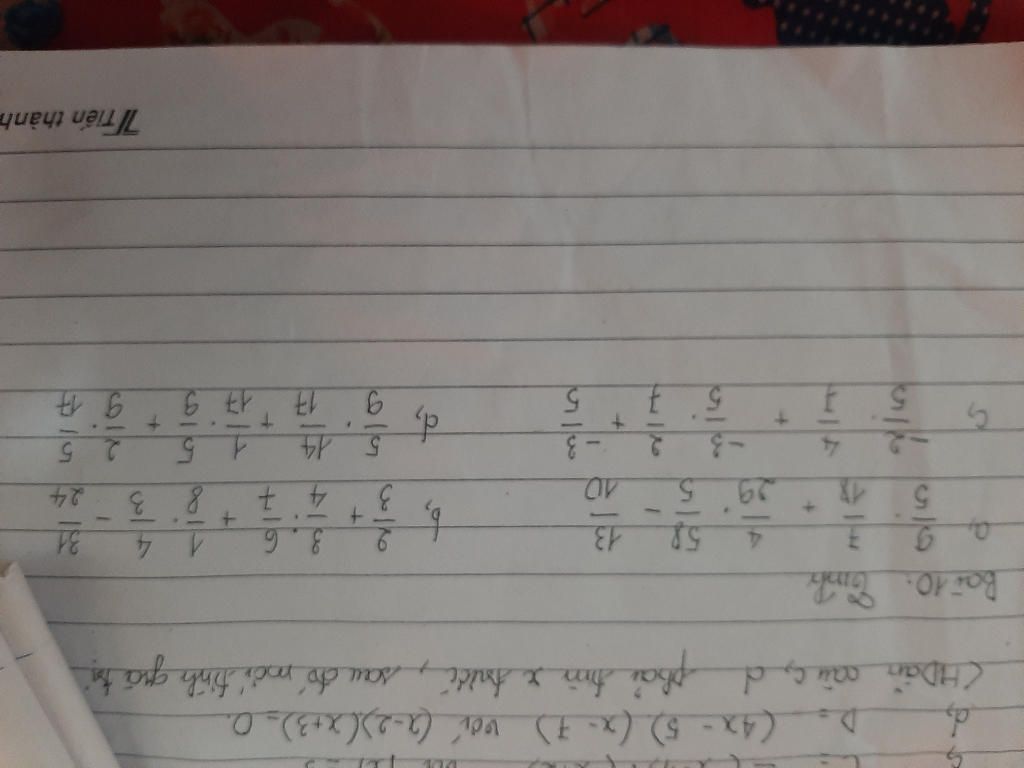 d, D = (4x - 5)(x - 7) với (x-2)(x+3)=0.
(HDẫn câu c, d phải tìm x trước, sau đó mới tính giá trị
Bài 10. Tính
a, 9/5 . 7/18 + 4/29 . 58/5 - 13/10 b, 2/3 + 3/4 : 6/7 + 1/8 . 4/3 - 31/24
c, -2/5 . 4/7 + -3/5 . 2/7 + -3/5 d, 5/9 . 14/17 + 1/17 . 5/9 + 2/9 . 5/17
Tiến thành